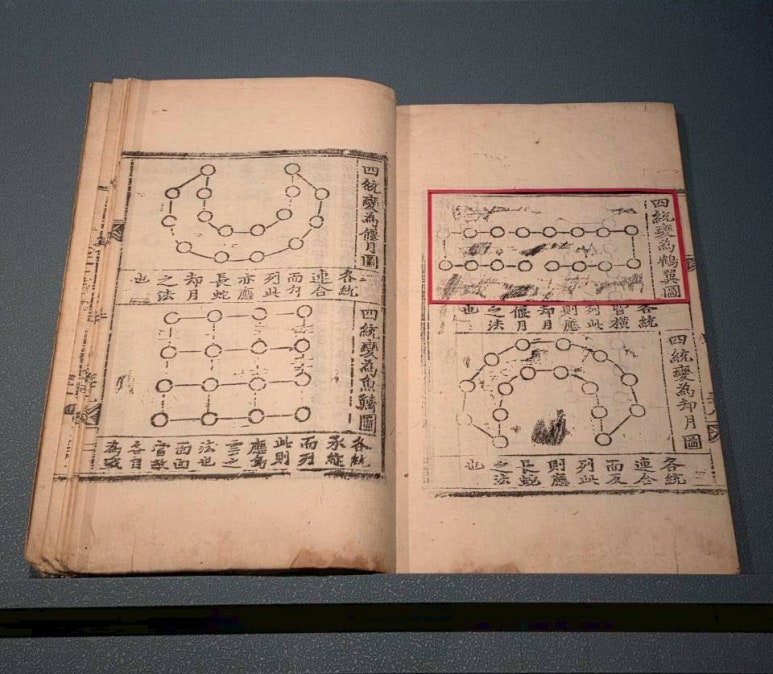 四統變為鶴翼圖
各統
皆橫
列此
則應
却月
偃月
之法
也
四統變為却月圖
各統
連合
而反
列此
則應
長蛇
之法
也
四統變為偃月圖
各統
連合
而
列此
亦應
長蛇
却月
之法
也
四統變為魚鱗圖
各統
承縱
而列
此則
應鳥
雲之
法也
面面
皆敵
各自
為戰